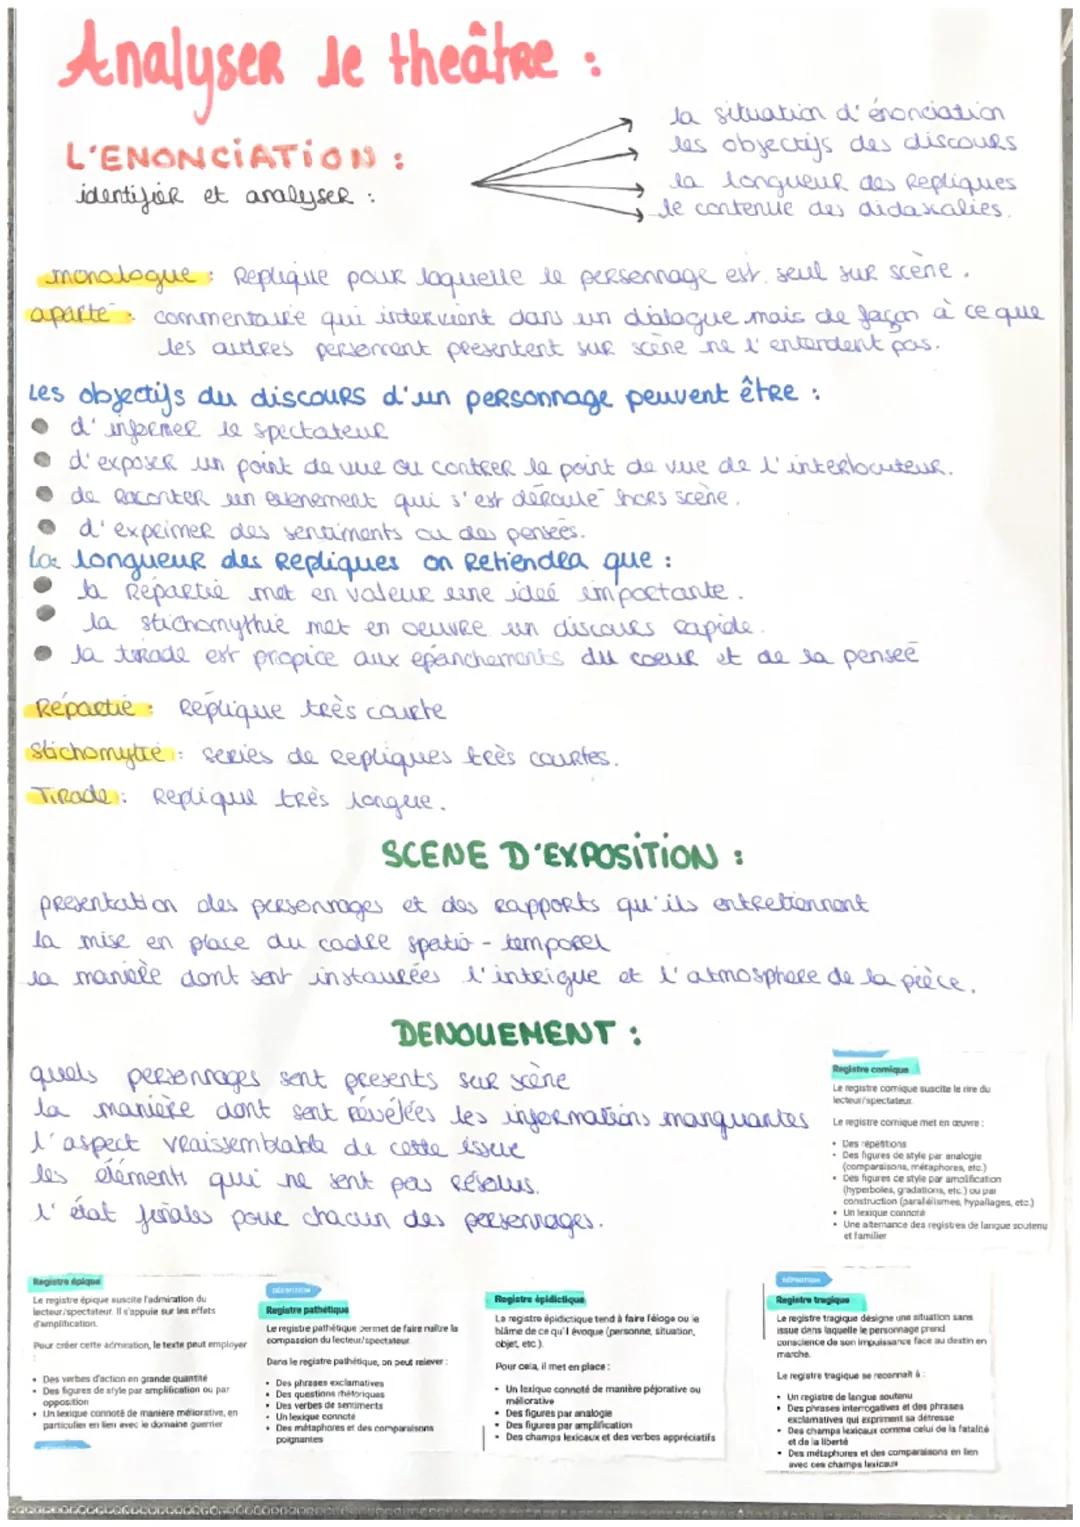 Analyser le theâtre :
L'ENONCIATION :
identifier et analyser :
la situation d'énonciation
les objectifs des discours
la longueur des Repliques
le contenue des didascalies.
monologue : Replique pour laquelle le personnage est seul sur scène.
aparté : commentaire qui intervient dans un dialogue mais de façon à ce que
les autres personnent presentent sur scène ne l'entendent pas.
Les objectifs du discours d'un personnage peuvent être :
d'informer le spectateur
d'exposer un point de vue ou contrer le point de vue de l'interlocuteur.
de raconter un evenement qui s'est déroulé hors scène.
d'exprimer des sentiments ou des pensées.
La longueur des Repliques on Retiendra que :
la Répartie met en valeur une ideé importante.
la stichomythie met en oeuvre un discours rapide.
la tirade est propice aux épanchements du coeur et de la penseé
Répartie : Réplique très courte
Stichomytie : series de repliques très courtes.
Tirade : Replique très longue.
SCENE D'EXPOSITION :
presentation des personnages et des rapports qu'ils entretiennent
la mise en place du cadre spatio - temporel
la manière dont sont instaurées l'intrigue et l'atmosphere de la pièce.
DENOUEMENT :
quels personnages sont presents sur scène
la manière dont sont révélées les informations manquantes
l'aspect vraissemblable de cette issue
les éléments qui ne sont pas résolus.
l'état finales pour chacun des personnages.
Registre comique
Le registre comique suscite le rire du
lecteur/spectateur.
Le registre comique met en œuvre :
• Des répétitions
• Des figures de style par analogie
(comparaisons, métaphores, etc.)
• Des figures de style par amplification
(hyperboles, gradations, etc.) ou par
construction (parallélismes, hypallages, etc.)
• Un lexique connoté
• Une alternance des registres de langue soutenu
et familier
Registre épique
Le registre épique suscite l'admiration du
lecteur/spectateur. Il s'appuie sur les effets
d'amplification.
Pour créer cette admiration, le texte peut employer
:
• Des verbes d'action en grande quantité
• Des figures de style par amplification ou par
opposition
• Un lexique connoté de manière méliorative, en
particulier en lien avec le domaine guerrier
DÉFINITION
Registre pathétique
Le registre pathétique permet de faire naître la
compassion du lecteur/spectateur.
Dans le registre pathétique, on peut relever :
• Des phrases exclamatives
• Des questions rhétoriques
• Des verbes de sentiments
• Un lexique connoté
• Des métaphores et des comparaisons
poignantes
Registre épidictique
Le registre épidictique tend à faire l'éloge ou le
blâme de ce qu'il évoque (personne, situation,
objet, etc.)
Pour cela, il met en place :
• Un lexique connoté de manière péjorative ou
méliorative
• Des figures par analogie
• Des figures par amplification
• Des champs lexicaux et des verbes appréciatifs
DÉFINITION
Registre tragique
Le registre tragique désigne une situation sans
issue dans laquelle le personnage prend
conscience de son impuissance face au destin en
marche.
Le registre tragique se reconnaît à :
• Un registre de langue soutenu
• Des phrases interrogatives et des phrases
exclamatives qui expriment sa détresse
• Des champs lexicaux comme celui de la fatalité
et de la liberté
• Des métaphores et des comparaisons en lien
avec ces champs lexicaux